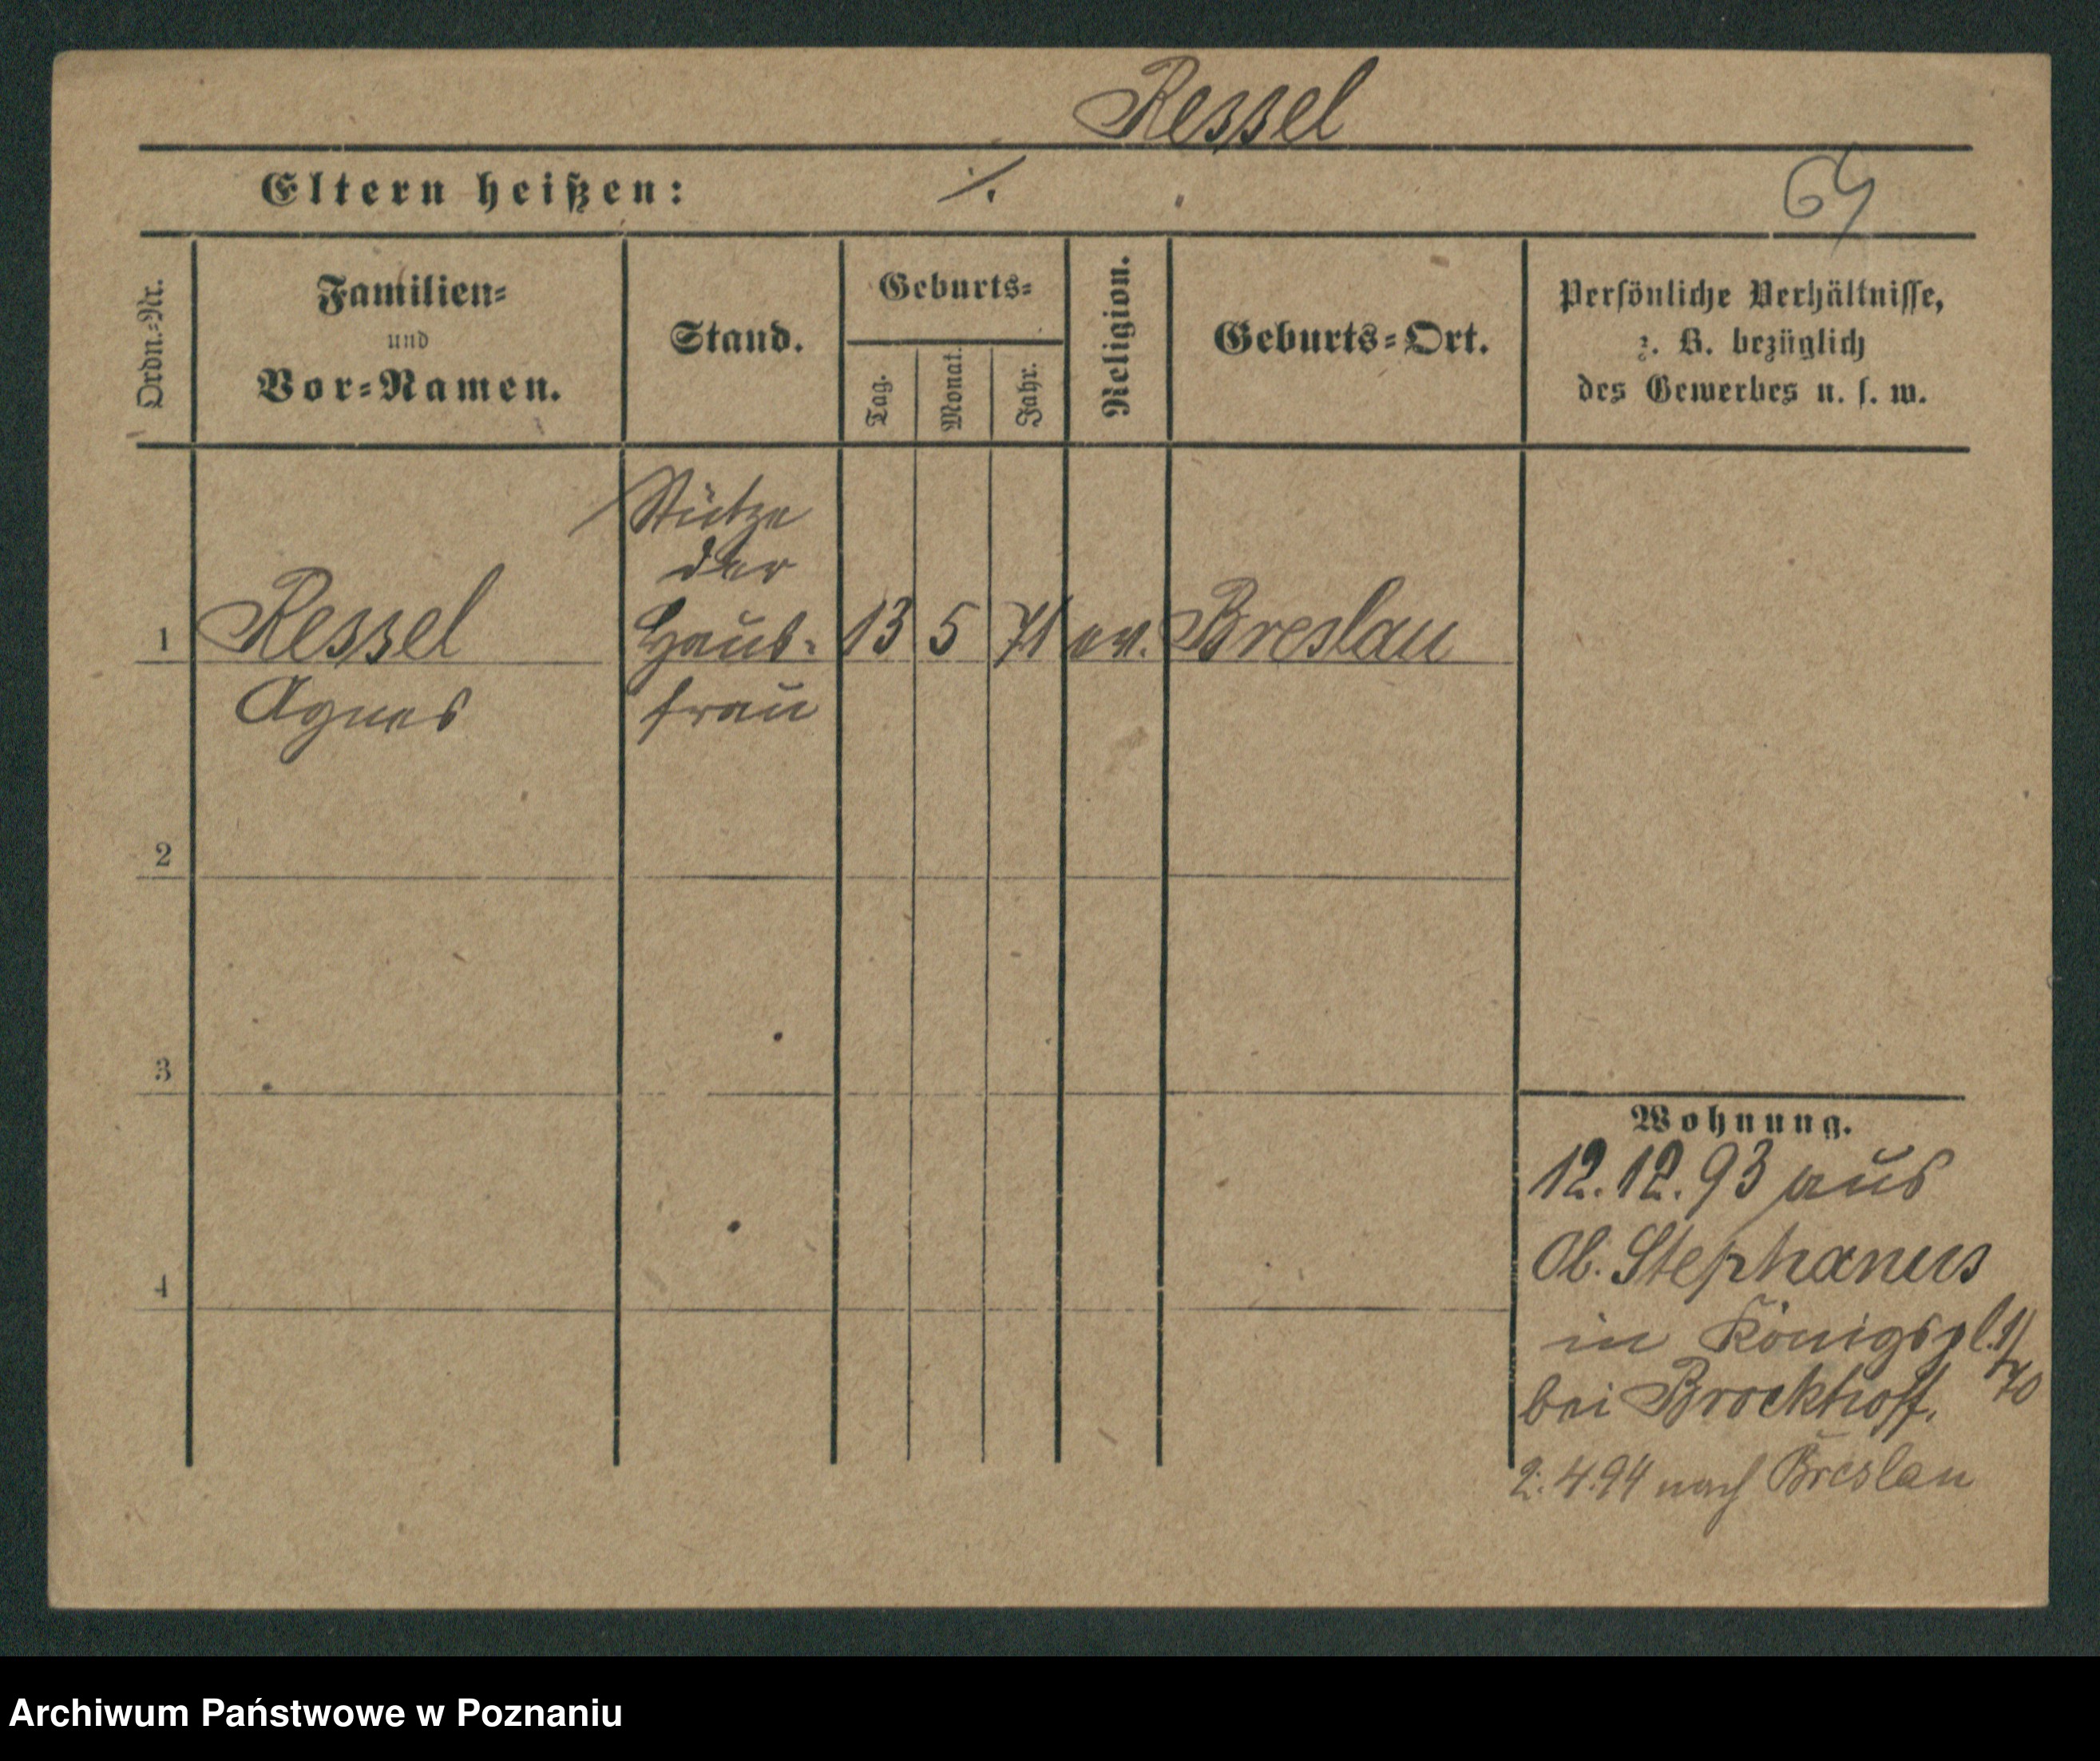 Ressel
Eltern heißen: ./.
69
Ordn.-Nr.
Familien-
und
Vor-Namen.
Stand.
Geburts-
Tag.
Monat.
Jahr.
Religion.
Geburts-Ort.
Persönliche Verhältnisse,
z. B. bezüglich
des Gewerbes u. s. w.
Stütze
der
1 Ressel Haus- 13 5 71 ev. Breslau
Agnes frau
2
3
4
Wohnung.
12.12.93 aus
Stephanus
in Königspl.
bei Brockhoff.
2.4.94 nach Breslau
Archiwum Państwowe w Poznaniu